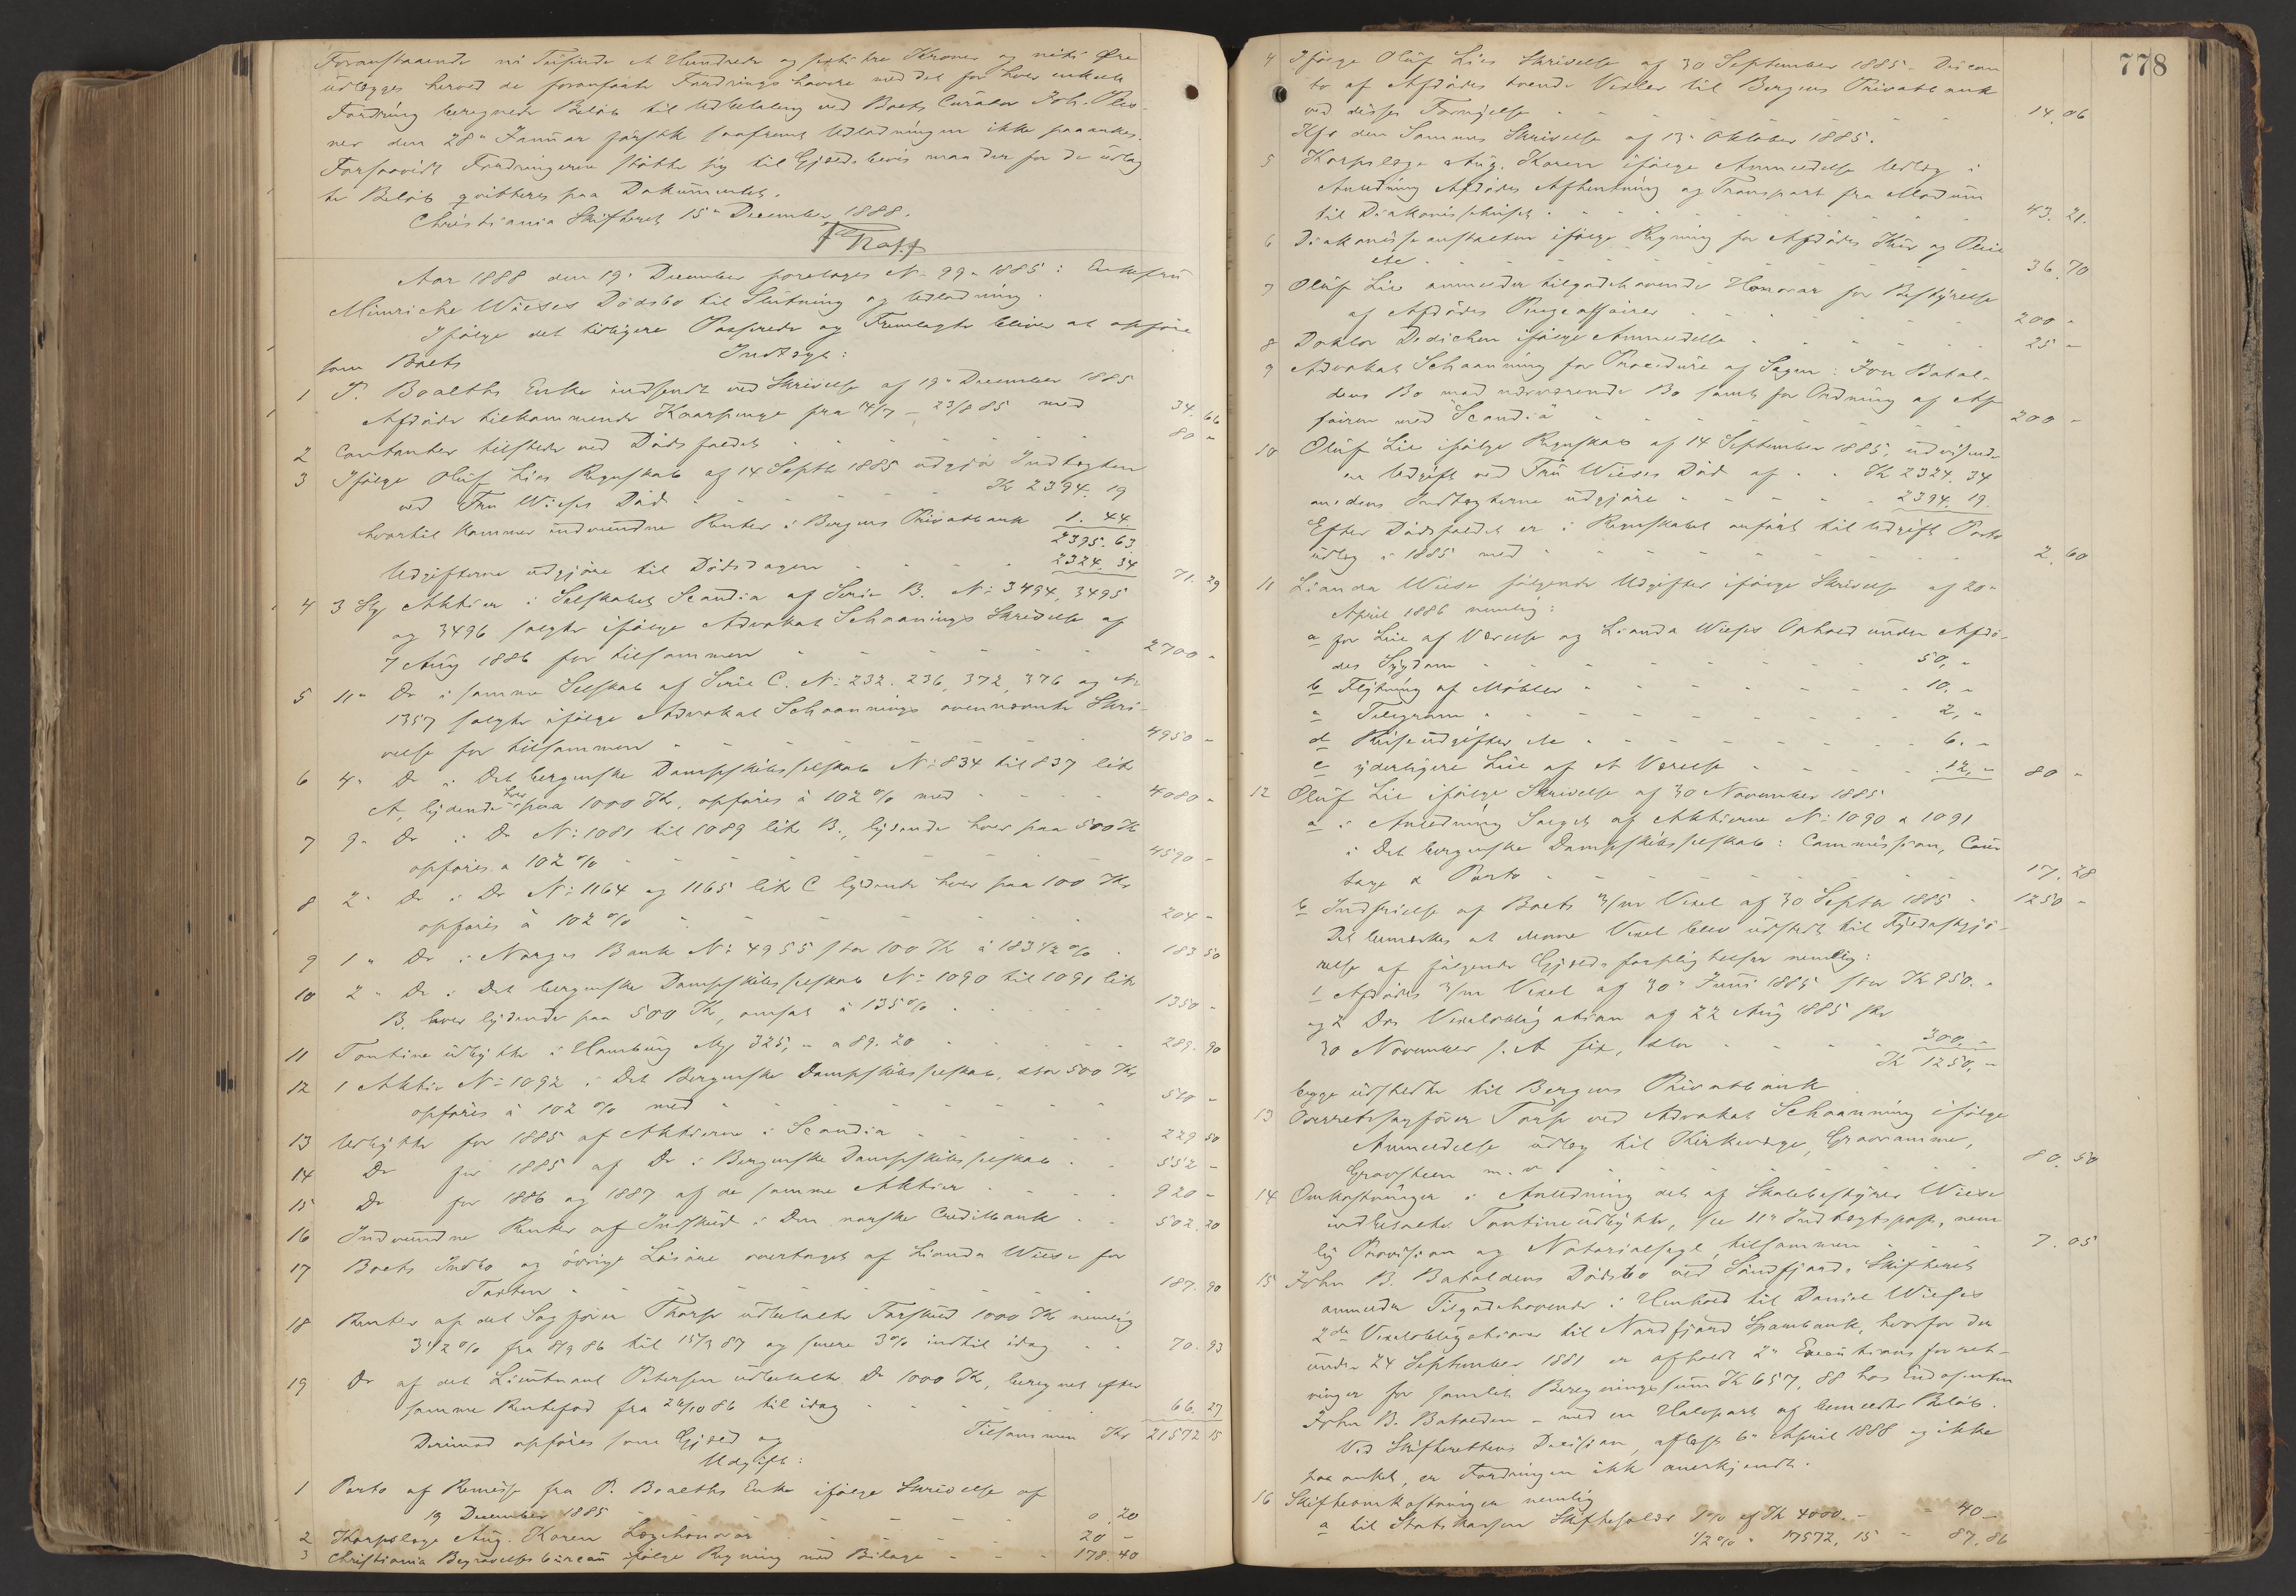 Foranstaaende nu Tusinde et Hundrede og sexti tre Kroner og niti Øre
udlægges herved de foranførte Fordrings havere med det for hver enkelt
Fordring beregnede Beløb til Udbetaling ved Boets Curator Joh.
ner den 28de Januar førstk saafremt Udlodningen ikke paaankes.
Forsaavidt Fordringerne støtte sig til Gjældsbevis maa der for de udlag
te Beløb qvitteres paa Dokumentet.
Christiania Skifteret 15de December 1888.
Aar 1888 den 19de December foretoges No 99 1885: Enkefru
Minriche Wieses Dødsbo til Slutning og Udlodning.
Ifølge det tidligere Passerede og Fremlagte bliver at opføre
som Boets Indtægt:
1 P. Boalths Enke indsendt ved Skrivelse af 19de December 1885
Afdøde tilkommende Kaarpenge fra 14/7 - 23/8 85 med 34.66
2 Contanter tilstede ved Dødsfaldet 80 -
3 Ifølge Oluf Lies Regnskab af 14 Septbr 1885 udgjør Indtægten
ved Fru Wieses Død Kr 2394. 19
hvortil kommer indvundne Renter i Bergens Privatbank 1. 44
2395. 63
Udgifterne udgjøre til Dødsdagen 2324. 34 71. 29
4 3 Stk Aktier i Selskabet Scandia af Serie B. No 3494, 3495
og 3496 solgte ifølge Advokat Schaannings Skrivelse af
7 Aug 1886 for tilsammen 2700 -
5 11 Do i samme Selskab af Serie C. No 232. 236, 372, 376 og No
1357 solgte ifølge Advokat Schaannings ovennævnte Skri-
velse for tilsammen 4950 -
6 4 Do i Det bergenske Dampskibsselskab No 834 til 837 litr
A, lydende hver paa 1000 Kr, opføres à 102 % med 4080 -
7 9 Do i Do No 1081 til 1089 litr B., lydende hver paa 500 Kr
opføres a 102 % 4590 -
8 2 Do i Do No 1164 og 1165 litr C lydende hver paa 100 Kr
opføres à 102 % 204 -
9 1 Do i Norges Bank No 4955 stor 100 Kr à 183 1/2 % 183 50
10 2 Do i Det bergenske Dampskibsselskab No 1090 til 1091 litr
B. hver lydende paa 500 Kr, omsat à 135 % 1350 -
11 Tontine udbytte i Hamburg Mk 325, - a 89. 20 289. 90
12 1 Aktie No 1092 i Det Bergenske Dampskibsselskab, stor 500 Kr
opføres à 102 % med 510 -
13 Udbytte for 1885 af Aktierne i Scandia 229 50
14 Do for 1885 af Do i Bergenske Dampskibsselskab 552 -
15 Do for 1886 og 1887 af de samme Aktier 920 -
16 Indvundne Renter af Indskud i Den norske Creditbank 502. 20
17 Boets Indbo og øvrige Løsøre overtaget af Lianda Wiese for
Taxten 187. 90
18 Renter af det Sagfører Thorse udbetalte Forskud 1000 Kr nemlig
3 1/2 % fra 8/9 86 til 15/3 87 og senere 3 % indtil idag 70. 93
19 Do af det Lieutnant Petersen udbetalte Do 1000 Kr, beregnet efter
samme Rentefod fra 26/10 86 til idag 66. 27
Tilsammen Kr 21572 15
Derimod opføres som Gjæld og
Udgift:
1 Porto af Remisse fra P. Boalths Enke ifølge Skrivelse af
19 December 1885 0. 20
2 Korpslæge Aug. Koren Lægehonorar 20 -
3 Christiania Begravelses bureau ifølge Regning med Bilage 178. 40
778
4 Ifølge Oluf Lies Skrivelse af 30 September 1885 - Discon
to af Afdødes tvende Vexler til Bergens Privatbank
ved disses Fornyelse 14. 06
Kfr den Sammes Skrivelse af 13de Oktober 1885.
5 Korpslæge Aug. Koren ifølge Anmeldelse Udlæg i
Anledning Afdødes Afhentning og Transport fra Modum
til Diakonissehuset 43. 21.
6 Diakonisseanstalten ifølge Regning for Afdødes Kur og Pleie
etc 36. 70
7 Oluf Lie anmelder tilgodehavende Honorar for Bestyrelse
af Afdødes Pengeaffairer 200 -
8 Doktor Dedichen ifølge Anmeldelse 25 -
9 Advokat Schaanning for Procedure af Sagen: Jon Batal-
dens Bo mod nærværende Bo samt for Ordning af Af-
fairen med Scandia 200 -
10 Oluf Lie ifølge Regnskab af 14 September 1885, udvisende
en Udgift ved Fru Wieses Død af Kr 2324. 34
medens Indtægterne udgjøre 2394. 19.
Efter Dødsfaldet er i Regnskabet anført til Udgift Porto
udlæg i 1885 med 2. 60
11 Lianda Wiese følgende Udgifter ifølge Skrivelse af 20de
April 1886 nemlig:
a for Leie af Værelse og Lianda Wieses Ophold under Afdø-
des Sygdom 50, -
b Flytning af Møbler 10. -
c Telegram 2, -
d Reiseudgifter etc 6. -
e yderligere Leie af et Værelse 12, - 80 -
12 Oluf Lie ifølge Skrivelse af 30 November 1885
a i Anledning Salget af Aktierne No 1090 a 1091
i Det bergenske Dampskibsselskab: Commission, Cour
tage & Porto 17. 28
b Indfrielse af Boets 3/m Vexel af 30 Septbr 1885 1250 -
Det bemærkes at denne Vexel blev udstedt til Fyldestgjø-
relse af følgende Gjældsforpligtelser nemlig:
1 Afdødes 3/m Vexel af 30de Juni 1885 stor Kr 950. -
og 2 Dos Vexelobligation af 22 Aug 1885 pr
30 November s. A fix, stor 300, -
Kr 1250, -
begge udstedte til Bergens Privatbank
13 Overretssagfører Torse ved Advokat Schaanning ifølge
Anmeldelse udlæg til Kirkeværge, Gravramme,
Gravsteen m. v 80. 50
14 Omkostninger i Anledning det af Skolebestyrer Wiese
indbetalte Tontineudbytte, see 11te Indtægtspost, nem
lig Provision og Notarialsegl, tilsammen 7. 05
15 John B. Bataldens Dødsbo ved Søndfjords Skifteret
anmelder Tilgodehavende i Henhold til Daniel Wieses
2de Vexelobligationer til Nordfjord Sparebank, hvorfor der
under 24 September 1881 er afholdt 2de Executions forret-
ninger for samlet Beregningssum Kr 657, 88 hos Endossenten
John B. Batalden - med en Halvpart af bemeldte Beløb.
Ved Skifterettens Decision, aflagt 6te April 1888 og ikke
paa anket, er Fordringen ikke anerkjendt.
16 Skifteomkostninger nemlig
a til Statskassen Skiftesalær 1 % af Kr 4000. - 40 -
1/2 % " 17572, 15 87. 86